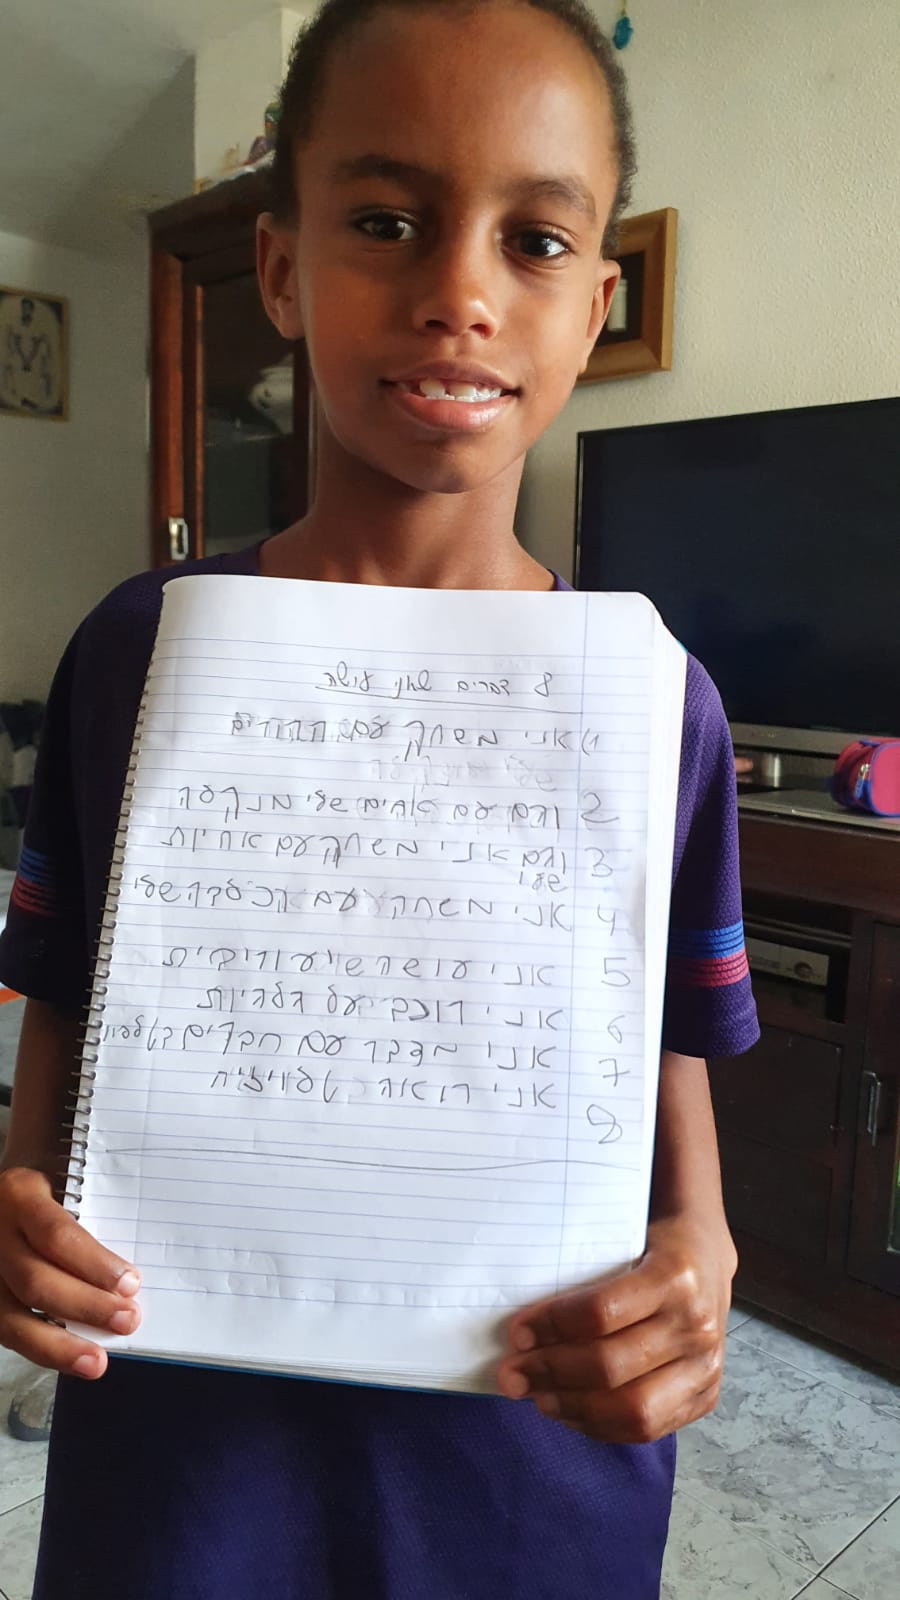 8 דברים שאני עושה
1) אני משחק עם ההורים
2 וגם עם אחים שלי מנקלה
3 וגם אני משחק עם אחיות
שלי
4 אני משחק עם הכלבה שלי
5 אני עושה שיעורי בית
6 אני רוכב על גלגיות
7 אני מדבר עם חברים בטלפון
8 אני רואה טלוויזיה